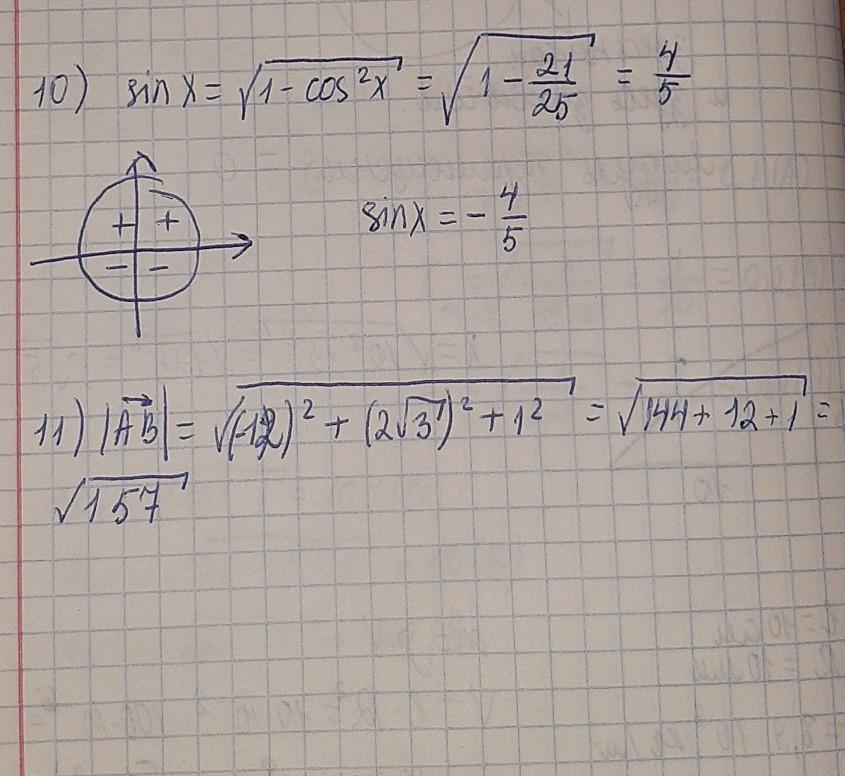 10) sin x = √(1 - cos²x) = √(1 - 21/25) = 4/5
+ +
- -
sin x = - 4/5
11) |AB⃗| = √((-12)² + (2√3)² + 1²) = √(144 + 12 + 1) =
√157